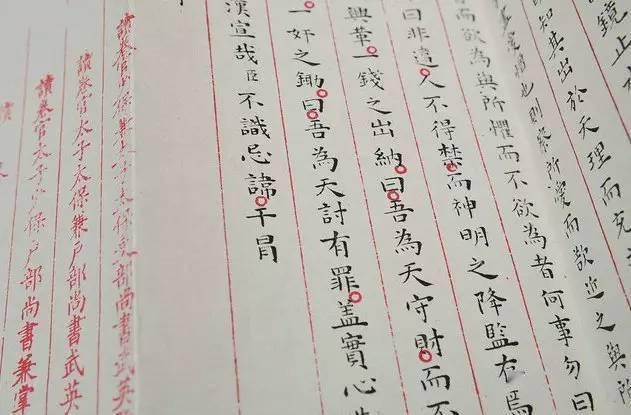 鏡止
知其出於天理而充
也則察所愛而欲近之與所
而欲為與所懼而不欲為者何事勿曰
曰非違人不得禁而神明之降監右焉
興革一錢之出納曰吾為天守財而不
一奸之鋤曰吾為天討有罪蓋實心
漢宣哉臣不識忌諱干冒
讀卷官少保兼太子太保吏部尚書武英
讀卷官太子太保兼戶部尚書武英
讀卷官太子少保戶部尚書兼掌
讀